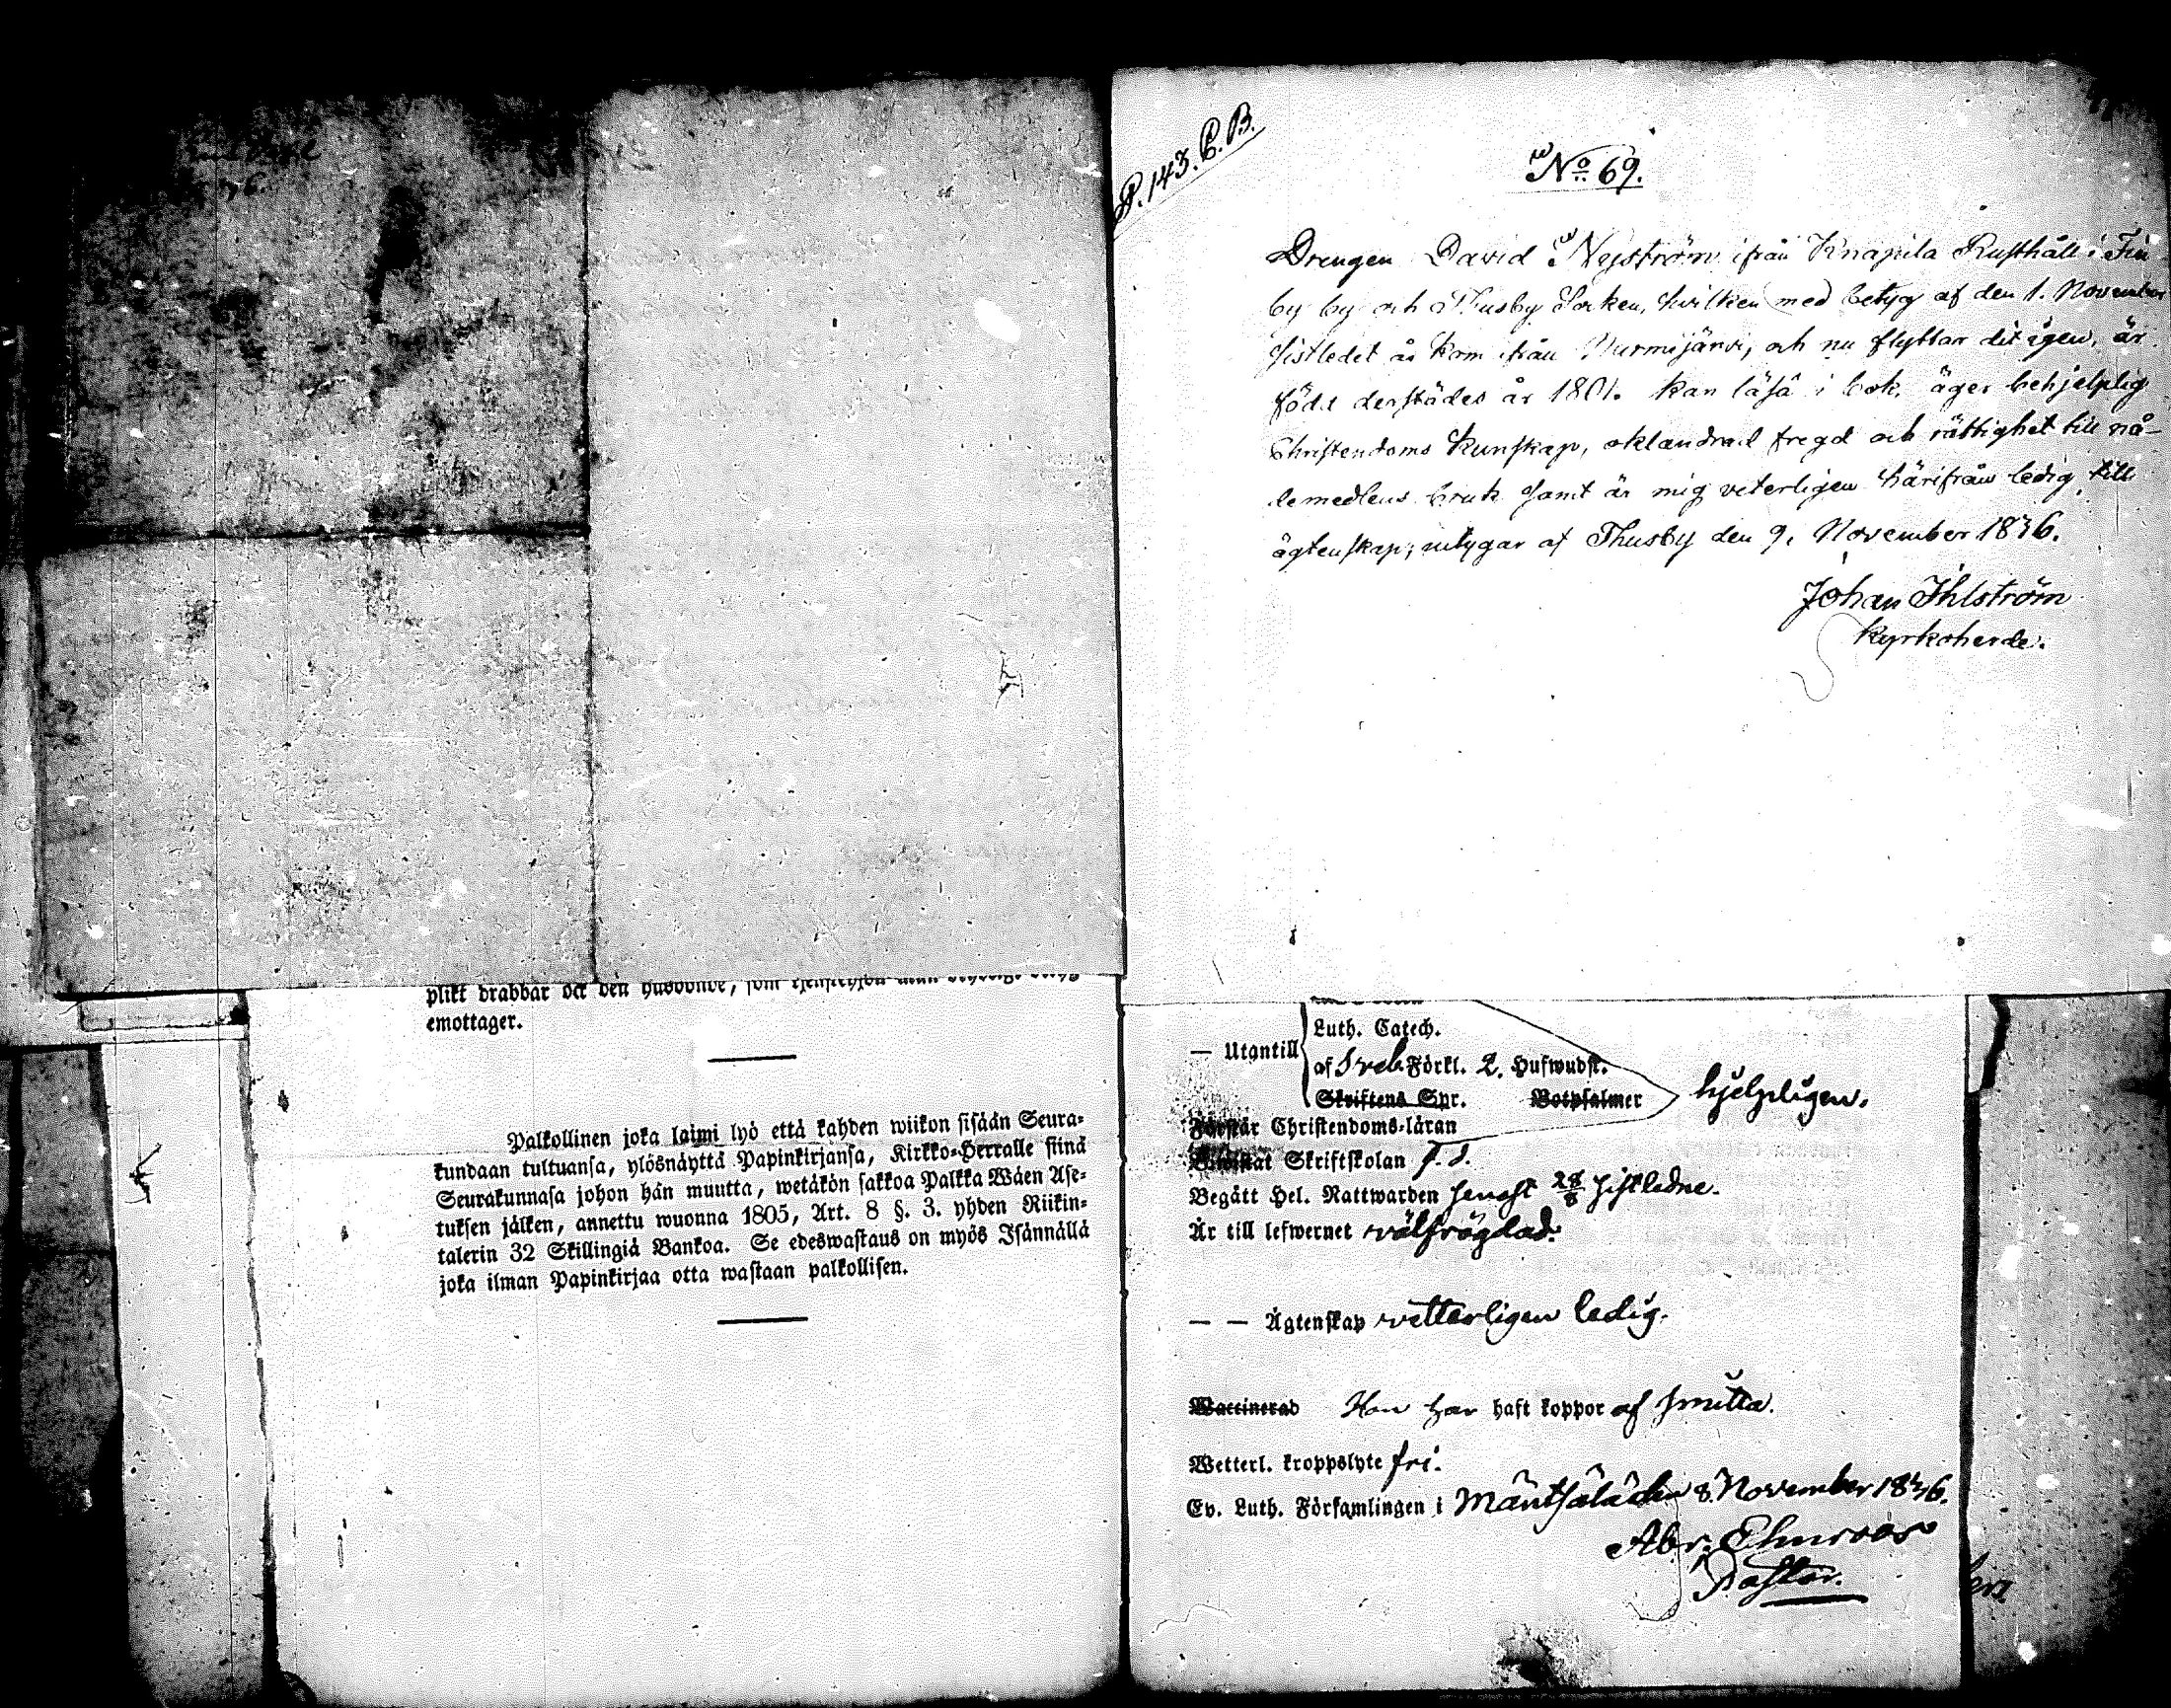 P. 143. C. B.
No 69.
Drengen David Nyström ifrån Knapila Rusthåll i Fin
by by och Thusby Socken, hvilken med betyg af den 1. November
sistledet år kom ifrån Nurmijärvi, och nu flyttar dit igen, är
född derstädes år 1801. kan läsa i bok, äger behjelplig
Christendoms kunskap, oklandrad fregd och rättighet till nå-
demedlens bruk samt är mig veterligen härifrån ledig till
ägtenskap; intygar af Thusby den 9. November 1836.
Johan Ihlström
Kyrkoherde.
plikt drabbar ock den husbonde, som
emottager.
Palkollinen joka laimi lyö että kahden wiikon sisään Seura-
kundaan tultuansa, ylösnäyttä Papinkirjansa, Kirkko-Herralle siinä
Seurakunnasa johon hän muutta, wetäkön sakkoa Palkka Wäen Ase-
tuksen jälken, annettu wuonna 1805, Art. 8 §. 3. yhden Riikin-
talerin 32 Skillingiä Bankoa. Se edeswastaus on myös Isännällä
joka ilman Papinkirjaa otta wastaan palkollisen.
— Utantill
Luth. Catech.
af Sveb. Förkl. 2. Hufwudst.
Skriftens Spr. Botpsalmer
hjelpligen.
Förstår Christendoms-läran
Bewistat Skriftskolan
Begått Hel. Nattwarden senast 28/8 sistledne.
Är till lefwernet välfrägdad.
— — Ägtenskap vetterligen ledig.
Waccinerad Hon har haft koppor af smitta.
Wetterl. kroppslyte fri.
Ev. Luth. Församlingen i Mäntsälä den 8. November 1836.
Abr. Elmroos
Pastor.